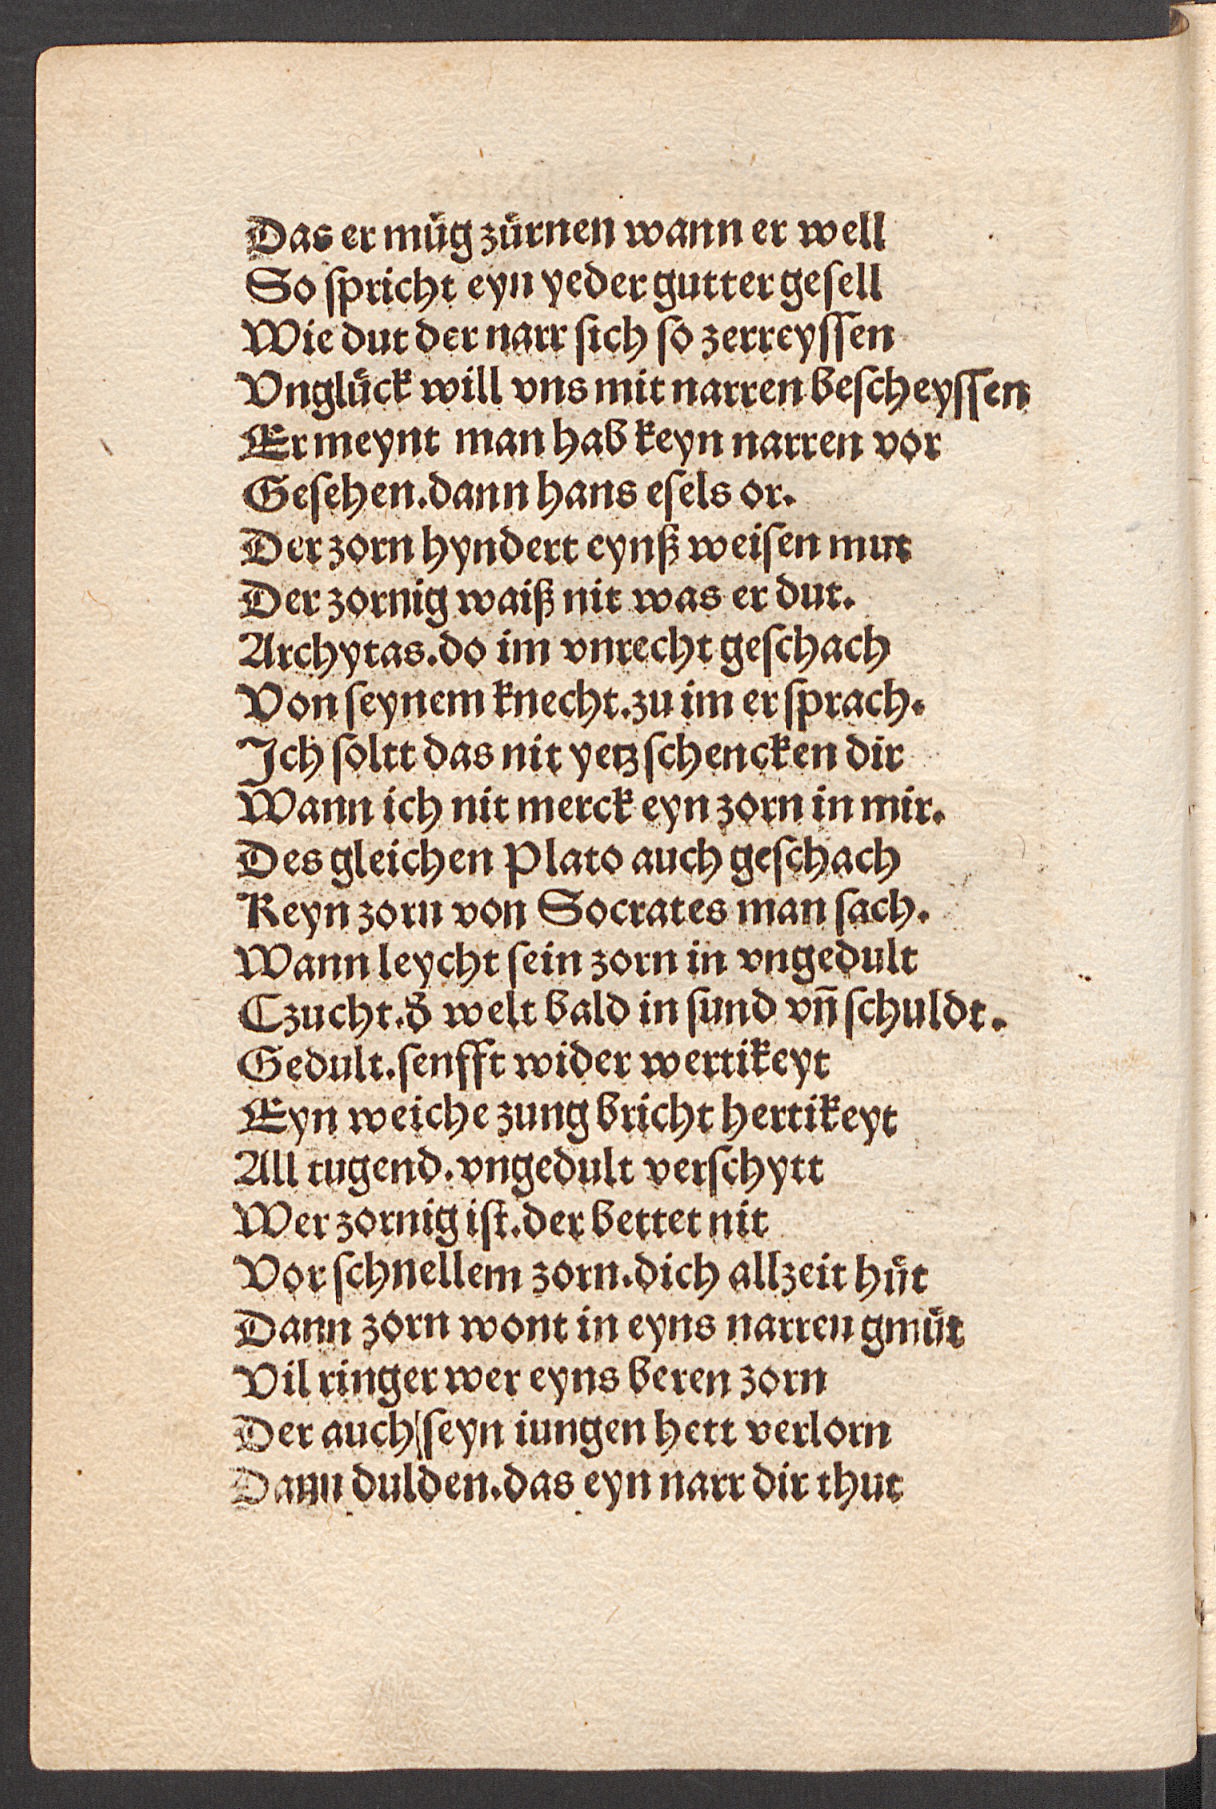 Das er mu̍g zu̍rnen wann er well
So ſpricht eyn yeder gutter geſell
Wie dut der narr ſich ſo zerreyſſen
Vnglu̍ck will vns mit narren beſcheyſſen
Er meynt man hab keyn narren vor
Geſehen.dann hans eſels or.
Der zorn hyndert eynß weiſen mut
Der zornig waiß nit was er dut.
Archytas.do im vnrecht geſchach
Von ſeynem knecht.zu im er ſprach.
Ich ſoltt das nit yetz ſchencken dir
Wann ich nit merck eyn zorn in mir.
Des gleichen Plato auch geſchach
Keyn zorn von Socrates man ſach.
Wann leycht ſein zorn in vngedult
Czucht.đ welt bald in ſund vn̄ ſchuldt.
Gedult.ſenfft wider wertikeyt
Eyn weiche zung bricht hertikeyt
All tugend.vngedult verſchytt
Wer zornig iſt.der bettet nit
Vor ſchnellem zorn.dich allzeit hu̍t
Dann zorn wont in eyns narren gmu̍t
Vil ringer wer eyns beren zorn
Der auch ſeyn iungen hett verlorn
Dann dulden.das eyn narr dir thut